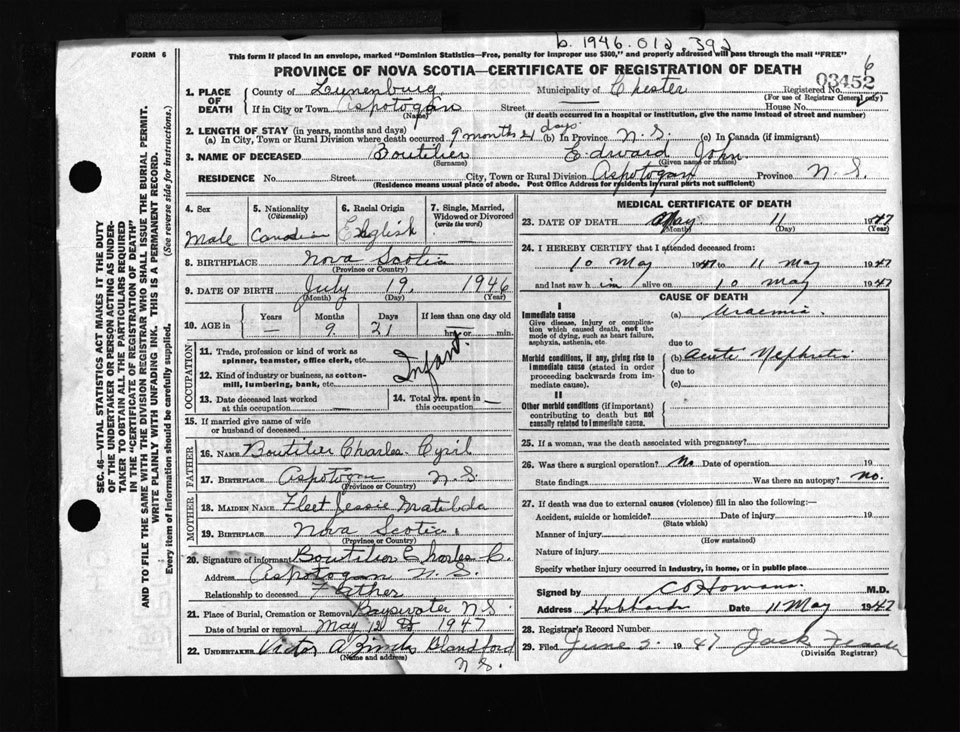 b. 1946.012.392
FORM 6
This form if placed in an envelope, marked "Dominion Statistics—Free, penalty for improper use $300," and properly addressed will pass through the mail "FREE"
PROVINCE OF NOVA SCOTIA—CERTIFICATE OF REGISTRATION OF DEATH
6
03452
1. PLACE OF DEATH
County of Lunenburg Municipality of Chester Registered No.
(For use of Registrar General only)
If in City or Town Aspotogan Street House No.
(Name) (If death occurred in a hospital or institution, give the name instead of street and number)
2. LENGTH OF STAY (in years, months and days)
(a) In City, Town or Rural Division where death occurred 9 months 21 days (b) In Province N.S. (c) In Canada (if immigrant)
3. NAME OF DECEASED Boutilier Edward John
(Surname) (Given name or names)
RESIDENCE No. Street City, Town or Rural Division Aspotogan Province N.S.
(Residence means usual place of abode. Post Office Address for residents in rural parts not sufficient)
SEC. 46—VITAL STATISTICS ACT MAKES IT THE DUTY
OF THE UNDERTAKER OR PERSON ACTING AS UNDER-
TAKER TO OBTAIN ALL THE PARTICULARS REQUIRED
IN THE "CERTIFICATE OF REGISTRATION OF DEATH"
AND TO FILE THE SAME WITH THE DIVISION REGISTRAR WHO SHALL ISSUE THE BURIAL PERMIT.
WRITE PLAINLY WITH UNFADING INK. THIS IS A PERMANENT RECORD.
Every item of information should be carefully supplied. (See reverse side for instructions.)
4. Sex Male
5. Nationality (Citizenship) Canadian
6. Racial Origin English
7. Single, Married, Widowed or Divorced (write the word) —
8. BIRTHPLACE Nova Scotia
(Province or Country)
9. DATE OF BIRTH July 19. 1946
(Month) (Day) (Year)
10. AGE in Years — Months 9 Days 21 If less than one day old hrs. or min.
OCCUPATION
11. Trade, profession or kind of work as spinner, teamster, office clerk, etc.
Infant.
12. Kind of industry or business, as cotton-mill, lumbering, bank, etc.
13. Date deceased last worked at this occupation
14. Total yrs. spent in this occupation —
15. If married give name of wife or husband of deceased
FATHER
16. NAME Boutilier Charles Cyril
17. BIRTHPLACE Aspotogan N.S.
(Province or Country)
MOTHER
18. MAIDEN NAME Fleet Jessie Matilda
19. BIRTHPLACE Nova Scotia
(Province or Country)
20. Signature of informant Boutilier Charles C.
Address Aspotogan N.S.
Relationship to deceased Father
21. Place of Burial, Cremation or Removal Bayswater N.S.
Date of burial or removal May 12 1947
22. UNDERTAKER Victor A Blandford
(Name and address) N.S.
MEDICAL CERTIFICATE OF DEATH
23. DATE OF DEATH May 11 1947
(Day) (Year)
24. I HEREBY CERTIFY that I attended deceased from:
10 May 1947 to 11 May 1947
and last saw h im alive on 10 May 1947
CAUSE OF DEATH
I
Immediate cause
Give disease, injury or complication which caused death, not the mode of dying, such as heart failure, asphyxia, asthenia, etc.
(a) Uraemia.
due to
Morbid conditions, if any, giving rise to immediate cause (stated in order proceeding backwards from immediate cause).
(b) Acute Nephritis
due to
(c)
II
Other morbid conditions (if important) contributing to death but not causally related to immediate cause.
25. If a woman, was the death associated with pregnancy?
26. Was there a surgical operation? No Date of operation 19
State findings Was there an autopsy? no.
27. If death was due to external causes (violence) fill in also the following:—
Accident, suicide or homicide? Date of injury 19
(State which)
Manner of injury
(How sustained)
Nature of injury
Specify whether injury occurred in industry, in home, or in public place
Signed by M.D.
Address Hubbards Date 11 May 1947
28. Registrar's Record Number
29. Filed June 3 1947 Jack
(Division Registrar)